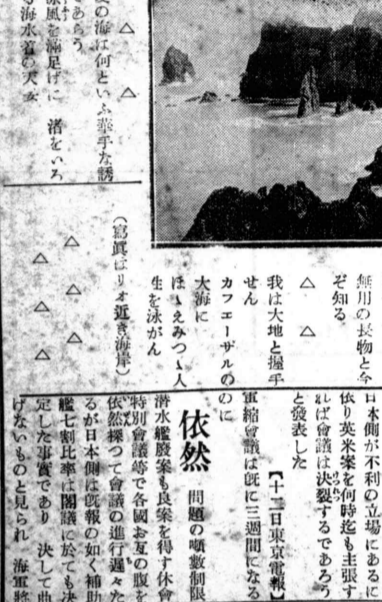 無用の長物と今
ぞ知る
△ △
我は大地と握手
せん
カフエーザルの
大海に
ほゝえみつゝ人
生を泳がん
(寫眞はリオ近き海岸)
△ △
の海は何といふ華手な誘
であらう
凉風を滿足げに 渚をいろ
海水着の天女
△ △ △
△ △ △ △
日本側が不利の立場にあるに
依り英米案を何時迄も主張す
れば會議は決裂するであろう
と發表した
【十二日東京電報】
軍縮會議は旣に三週間になる
のに
依然 問題の噸數制限
潜水艦廢案も良案を得ず休會
特別會議等で各國お互の腹を
依然探つて會議の進行遲々た
るが日本側は旣報の如く補助
艦七割比率は閣議に於ても決
定した事實であり 決して曲
げないものと見られ 海軍將